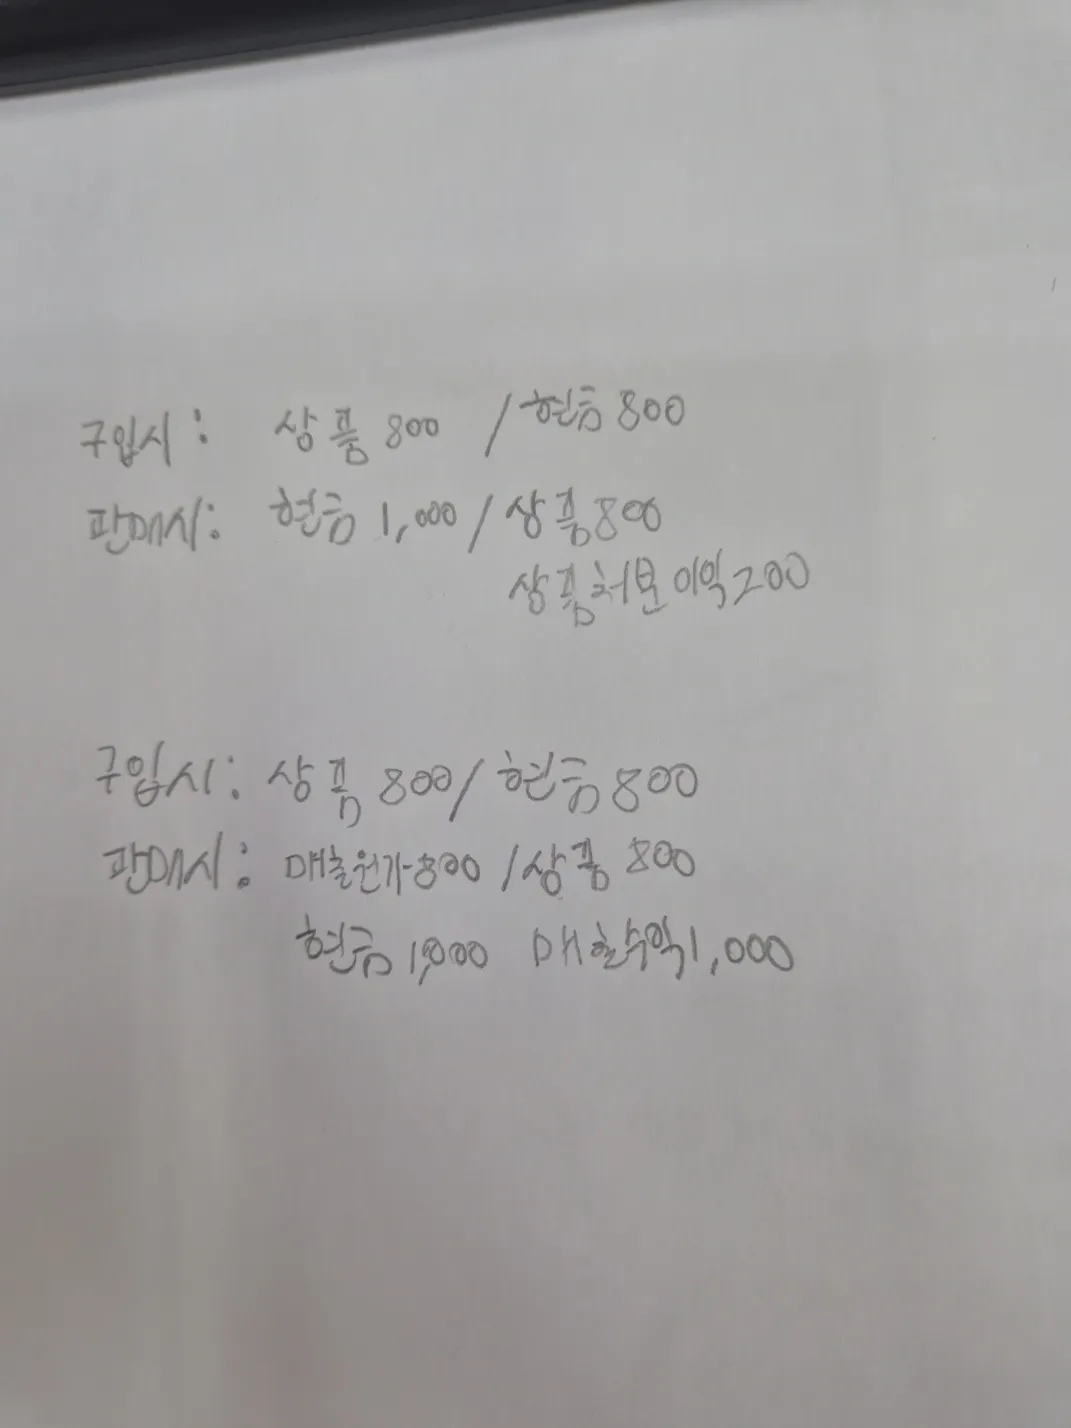 구입시: 상품 800 / 현금 800
판매시: 현금 1,000 / 상품 800
상품처분이익 200
구입시: 상품 800 / 현금 800
판매시: 매출원가 800 / 상품 800
현금 1,000 매출수익 1,000